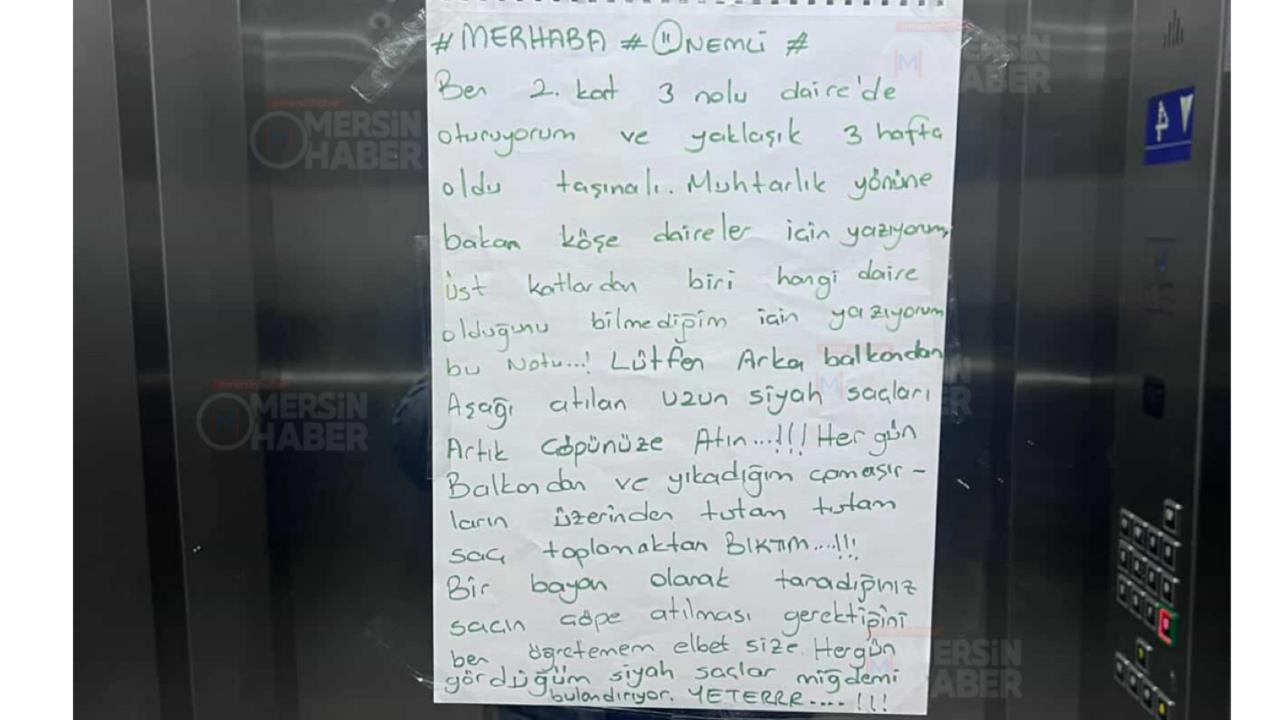 #MERHABA #ÖNEMLİ #
Ben 2. kat 3 nolu daire'de
oturuyorum ve yaklaşık 3 hafta
oldu taşınalı. Muhtarlık yönüne
bakan köşe daireler için yazıyorum,
üst katlardan biri hangi daire
olduğunu bilmediğim için yazıyorum
bu Notu...! Lütfen Arka balkondan
Aşağı atılan uzun siyah saçları
Artık çöpünüze Atın...!!! Her gün
Balkondan ve yıkadığım çamaşır-
ların üzerinden tutam tutam
saç toplamaktan BIKTIM....!!!
Bir bayan olarak taradığınız
saçın çöpe atılması gerektiğini
ben öğretemem elbet size. Hergün
gördüğüm siyah saçlar miğdemi
bulandırıyor. YETERRR.... !!!
4
MERSİN
HABER
MERSİN
HABER
MERSİN
HABER
MERSİN
HABER